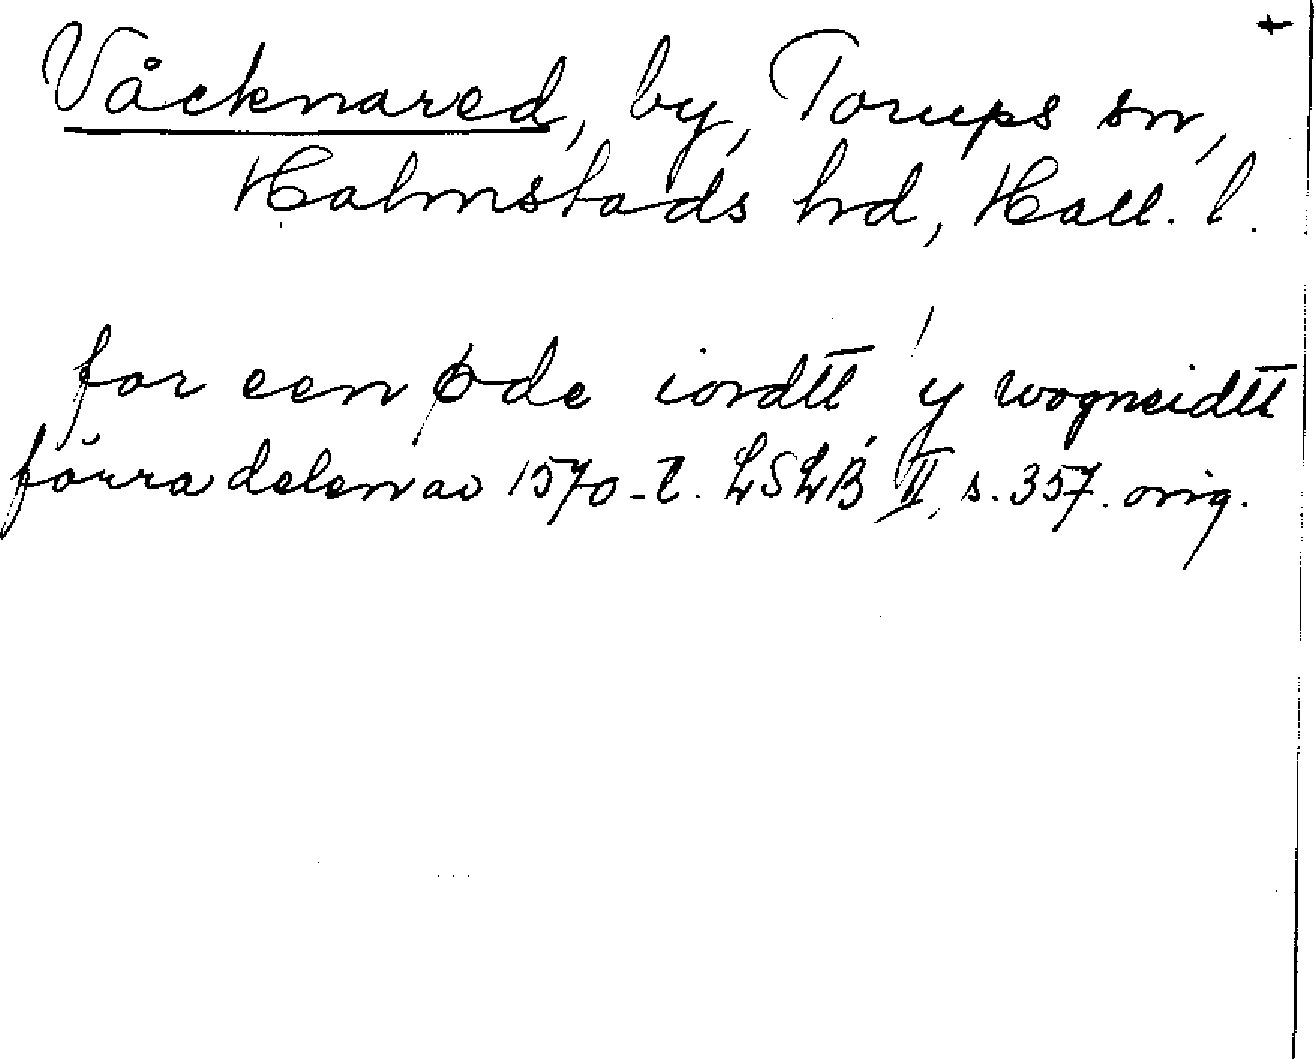 +
Våcknared, by, Torups sn,
Halmstads hd, Hall. l.
for een øde iordtt y wogneidtt
förra delen av 1570-t. LSLB II, s. 357. orig.